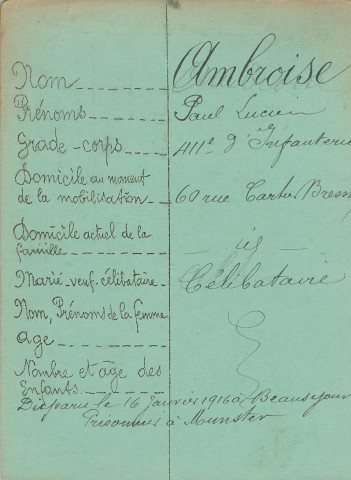 Nom Ambroise
Prénoms Paul Lucien
Grade-corps 411e d'Infanterie
Domicile au moment
de la mobilisation 60 rue
Domicile actuel de la
famille id
Marié-veuf-célibataire Célibataire
Nom, Prénoms de la femme
age
Nombre et âge des
Enfants
Disparu le 16 Janvier 1916 à Beausejour
Prisonnier à Munster